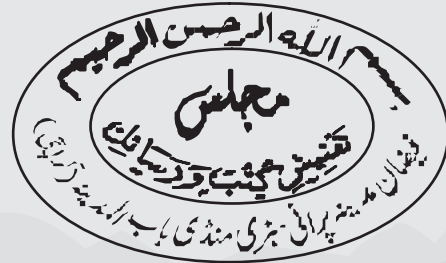 بسم الله الرحمن الرحيم
مجلس
تفتیشِ کُتُب و رَسائِل
فیضان مدینہ پرانی سبزی منڈی باب المدینہ (کراچی)